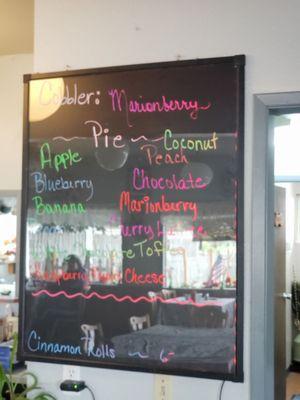 Cobbler: Marionberry
~ Pie ~ Coconut
Apple Peach
Blueberry Chocolate
Banana Marionberry
Toffee
Raspberry Cheese
Cinnamon Rolls ~ 6-